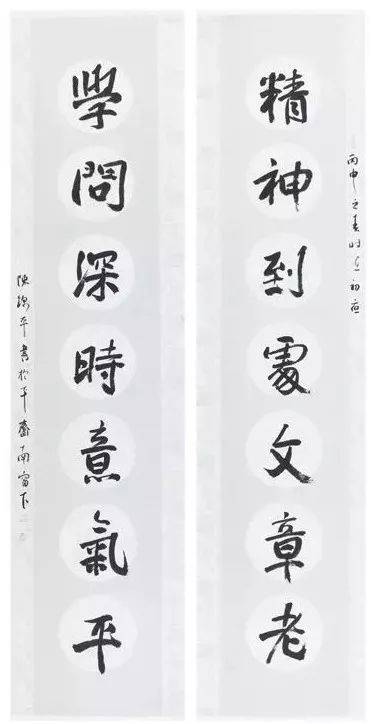 丙申之春時在初
精神到處文章老
學問深時意氣平
陳平書於平齋南窗下